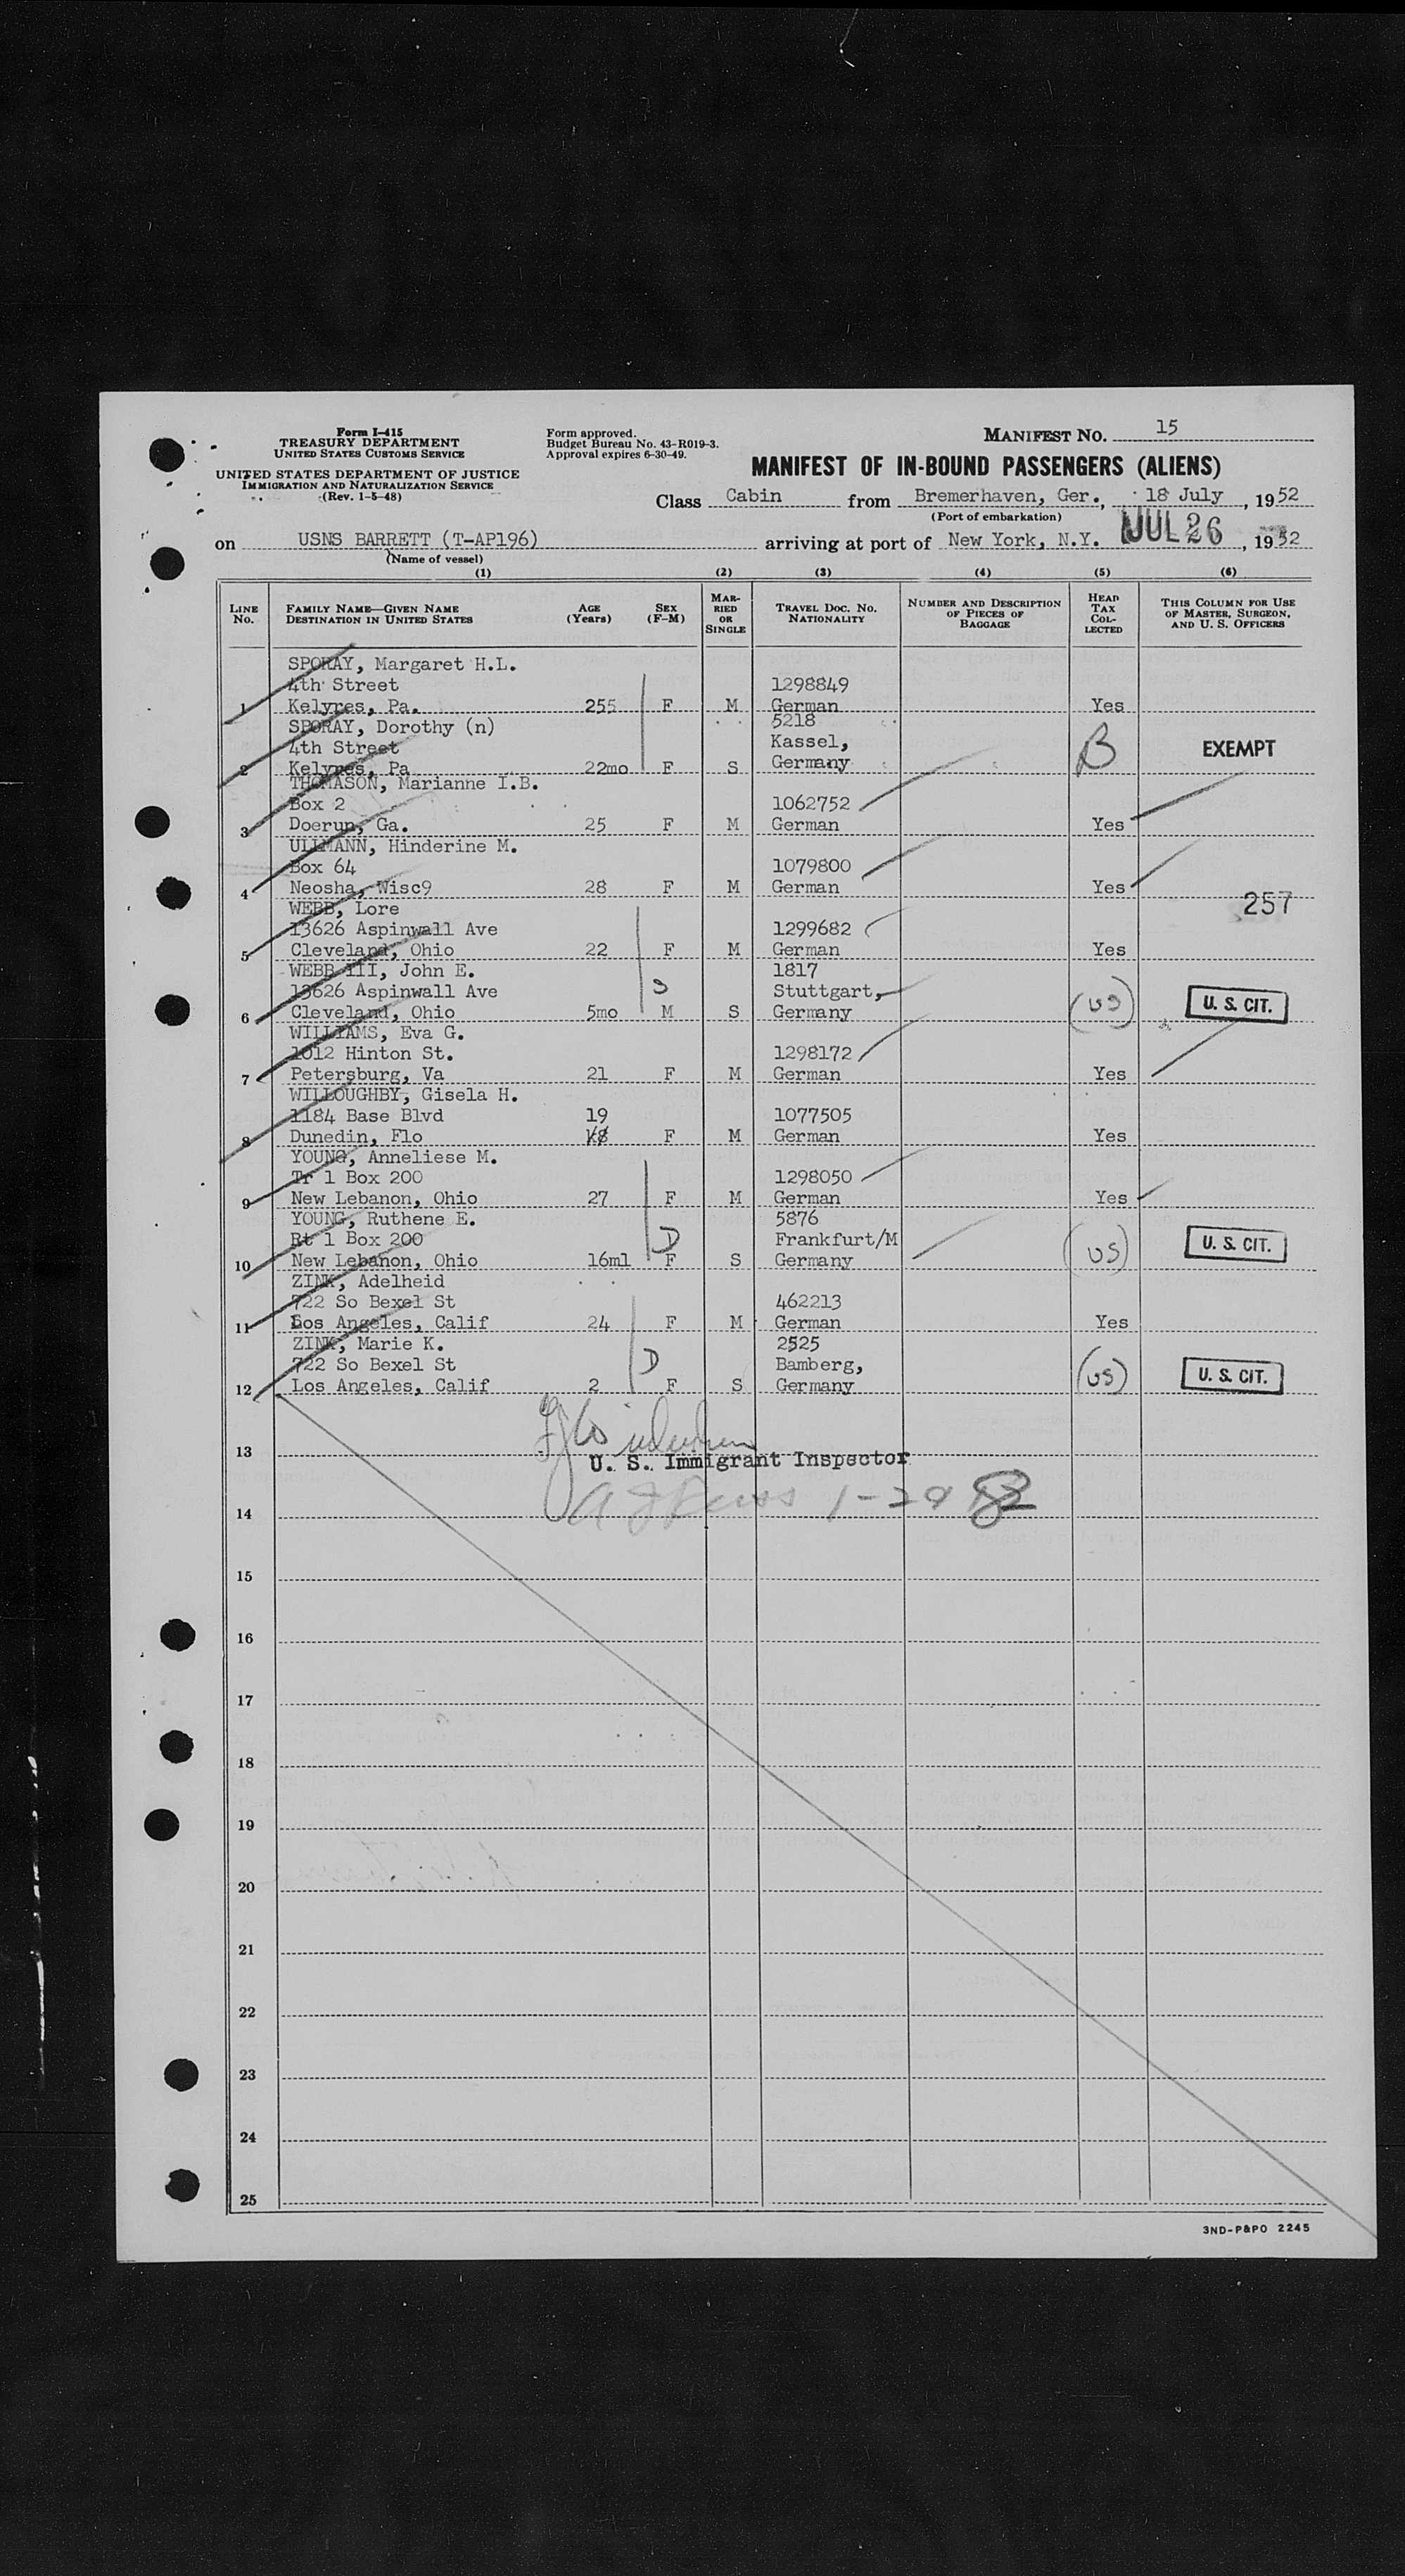 Form I-415
TREASURY DEPARTMENT
UNITED STATES CUSTOMS SERVICE
UNITED STATES DEPARTMENT OF JUSTICE
IMMIGRATION AND NATURALIZATION SERVICE
(Rev. 1-5-48)
Form approved.
Budget Bureau No. 43-R019-3.
Approval expires 6-30-49.
MANIFEST NO. 15
MANIFEST OF IN-BOUND PASSENGERS (ALIENS)
Class Cabin from Bremerhaven, Ger., 18 July, 1952
(Port of embarkation)
on USNS BARRETT (T-AP196) arriving at port of New York, N.Y. JUL 26, 1952
(Name of vessel)
(1) (2) (3) (4) (5) (6)
LINE No. FAMILY NAME—GIVEN NAME DESTINATION IN UNITED STATES AGE (Years) SEX (F-M) MARRIED OR SINGLE TRAVEL DOC. NO. NATIONALITY NUMBER AND DESCRIPTION OF PIECES OF BAGGAGE HEAD TAX COLLECTED THIS COLUMN FOR USE OF MASTER, SURGEON, AND U. S. OFFICERS
SPORAY, Margaret H.L.
4th Street 1298849
1 Kelyres, Pa. 255 F M German Yes
SPORAY, Dorothy (n) 5218
4th Street Kassel, B EXEMPT
2 Kelyres, Pa 22mo F S Germany
THOMASON, Marianne I.B.
Box 2 1062752
3 Doerun, Ga. 25 F M German Yes
ULLMANN, Hinderine M.
Box 64 1079800
4 Neosha, Wisc9 28 F M German Yes
WEBB, Lore 257
13626 Aspinwall Ave 1299682
5 Cleveland, Ohio 22 F M German Yes
WEBB III, John E. 1817
13626 Aspinwall Ave S Stuttgart, (US) U. S. CIT.
6 Cleveland, Ohio 5mo M S Germany
WILLIAMS, Eva G.
1012 Hinton St. 1298172
7 Petersburg, Va 21 F M German Yes
WILLOUGHBY, Gisela H.
1184 Base Blvd 19 1077505
8 Dunedin, Flo 18 F M German Yes
YOUNG, Anneliese M.
Tr 1 Box 200 1298050
9 New Lebanon, Ohio 27 F M German Yes
YOUNG, Ruthene E. 5876
Rt 1 Box 200 D Frankfurt/M (US) U. S. CIT.
10 New Lebanon, Ohio 16ml F S Germany
ZINK, Adelheid
722 So Bexel St 462213
11 Los Angeles, Calif 24 F M German Yes
ZINK, Marie K. 2525
722 So Bexel St D Bamberg, (US) U. S. CIT.
12 Los Angeles, Calif 2 F S Germany
13
U. S. Immigrant Inspector
14
15
16
17
18
19
20
21
22
23
24
25
3ND-P&PO 2245